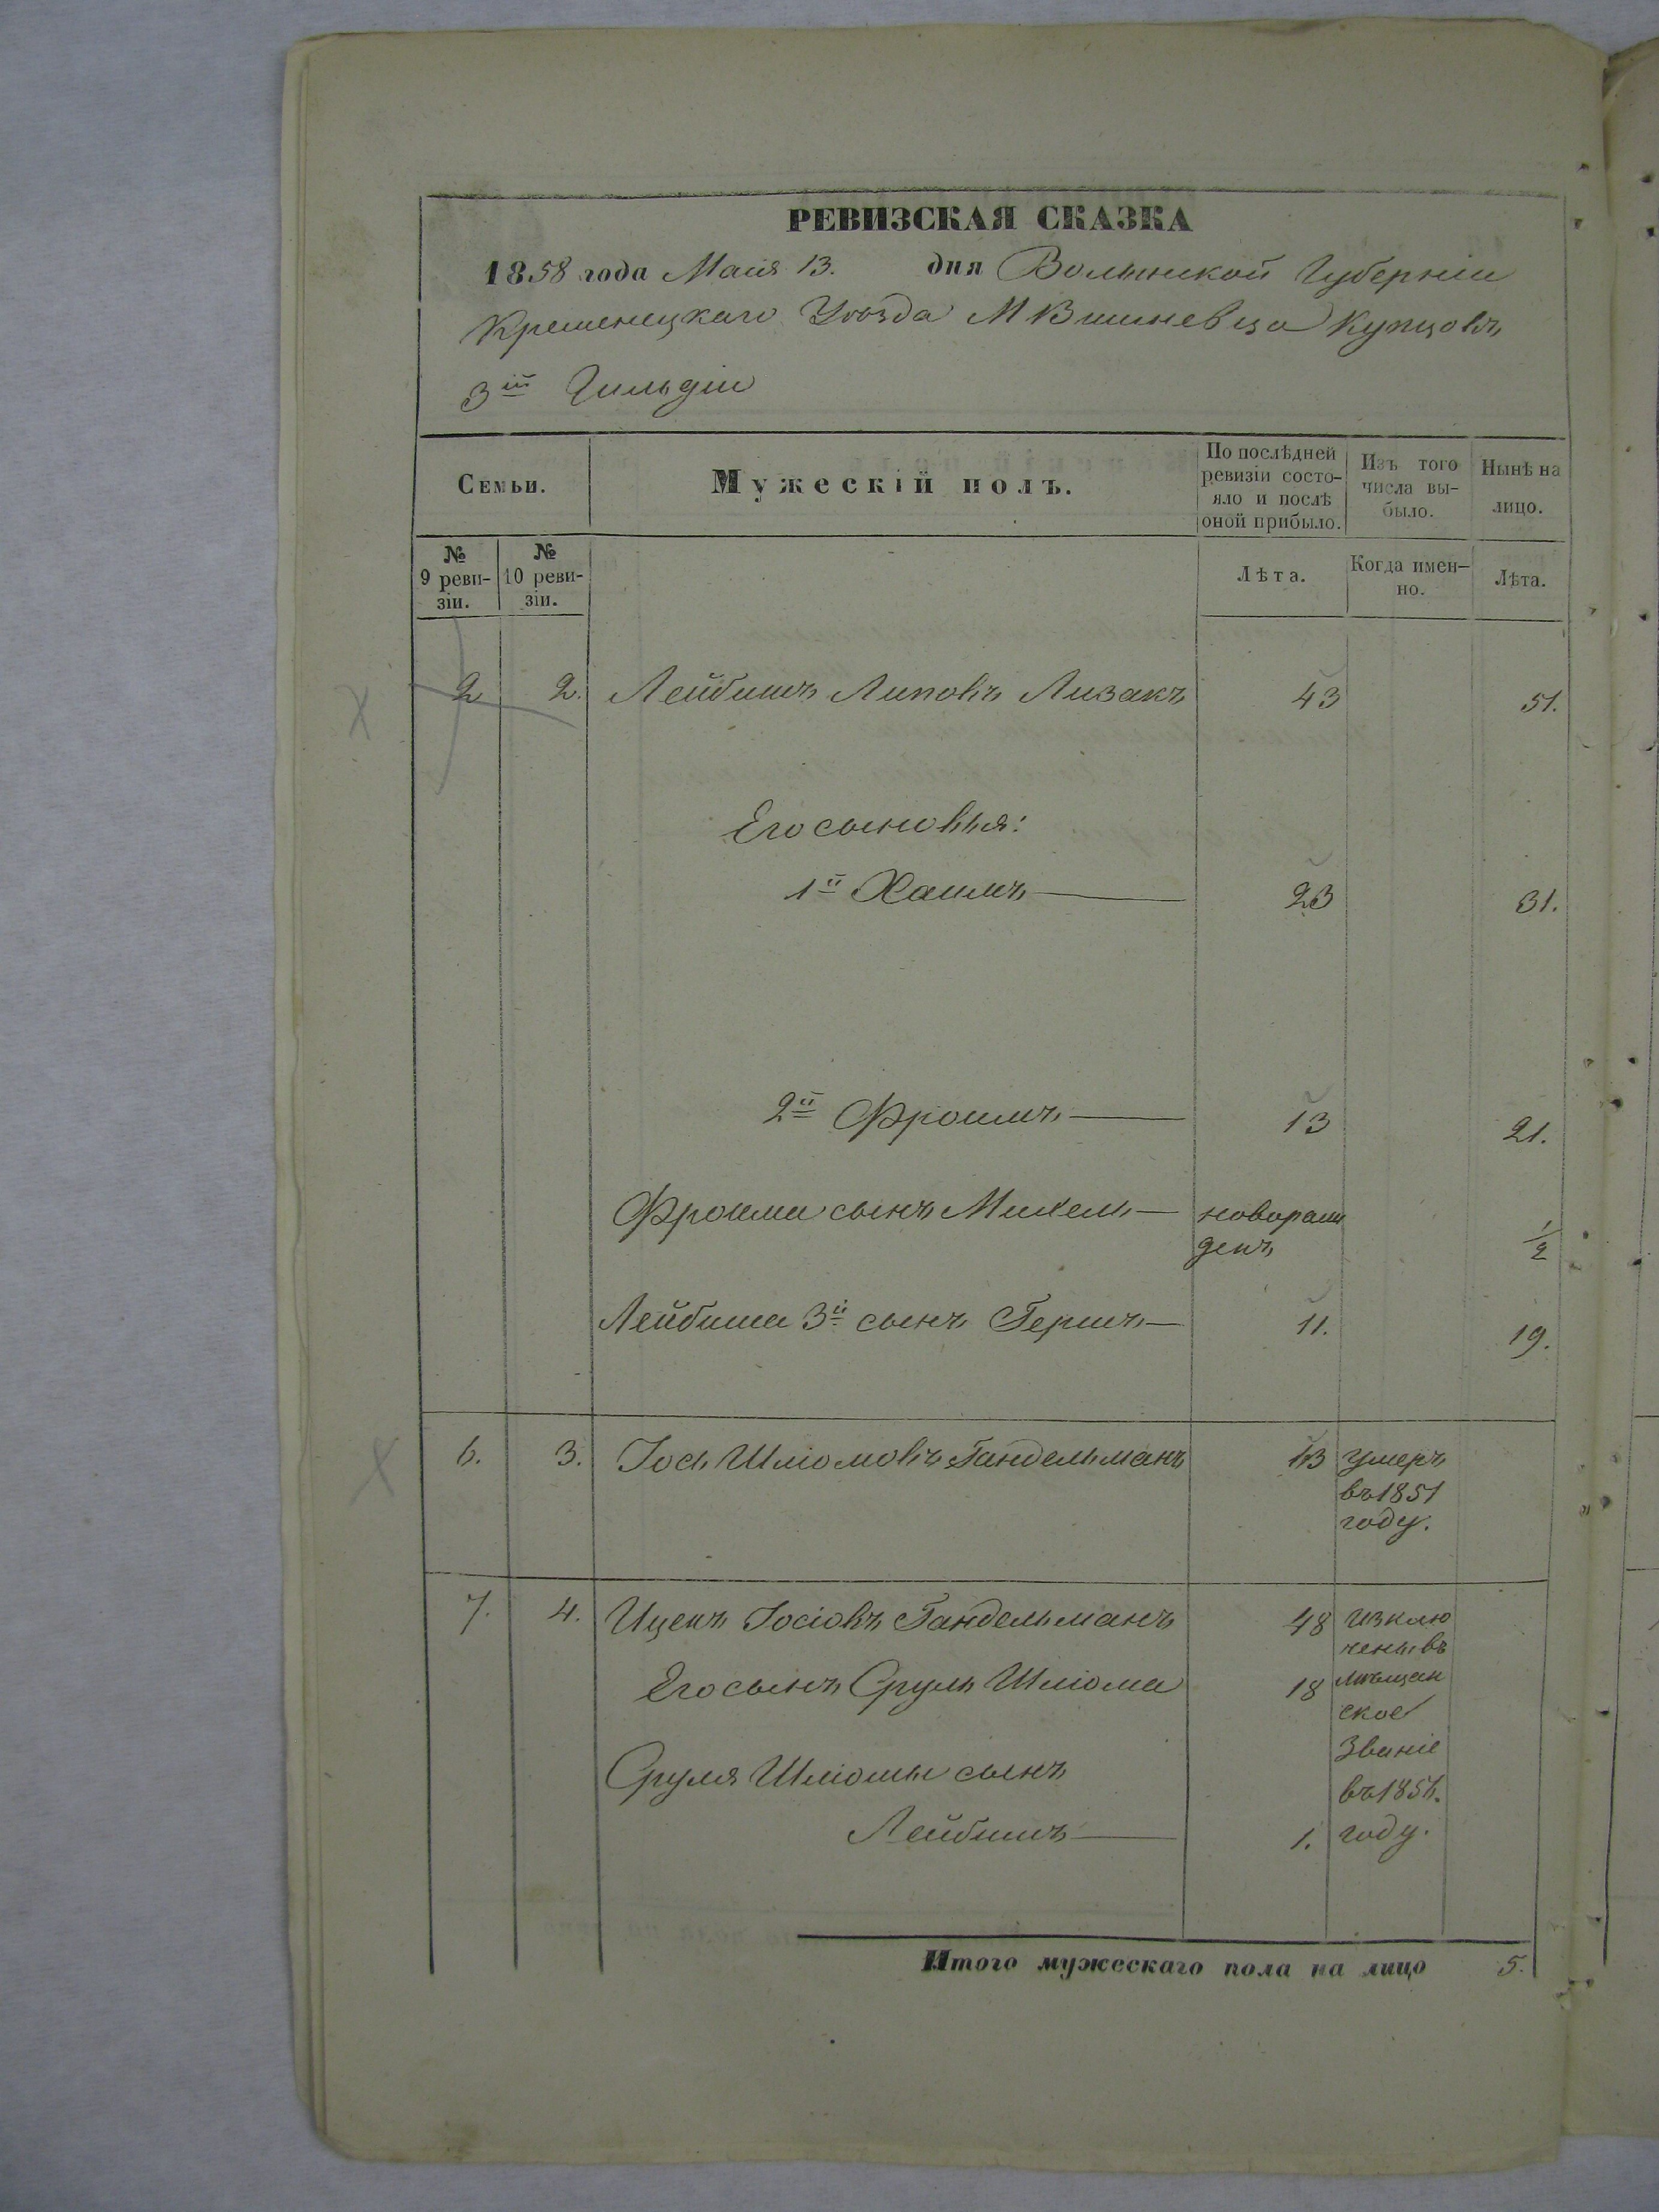 РЕВИЗСКАЯ СКАЗКА
1858 года Маія 13. дня Волынской Губерніи
Кременецкаго Уѣзда М Вишневца Купцовъ
3ій Гильдіи
Семьи.
Мужескій полъ.
По послѣдней ревизіи состояло и послѣ оной прибыло.
Изъ того числа выбыло.
Нынѣ на лицо.
№ 9 ревизіи.
№ 10 ревизіи.
Лѣта.
Когда именно.
Лѣта.
2 2. Лейбишъ Липовъ Лизакъ 43 51.
Его сыновья:
1й Хаимъ 23 31.
2й Фроимъ 13 21.
Фроима сынъ Михель новорож
денъ 1/2
Лейбиша 3й сынъ Гершъ 11. 19.
6. 3. Іось Шліомовъ Гандельманъ умеръ
въ 1851
году.
7. 4. Ицекъ Іосіовъ Гандельманъ 48 изклю
чены въ
Его сынъ Сруль Шліома 18 мѣщан
ское
Званіе
Сруля Шліомы сынъ
въ
Лейбишъ 1. году.
Итого мужескаго пола на лицо 5.